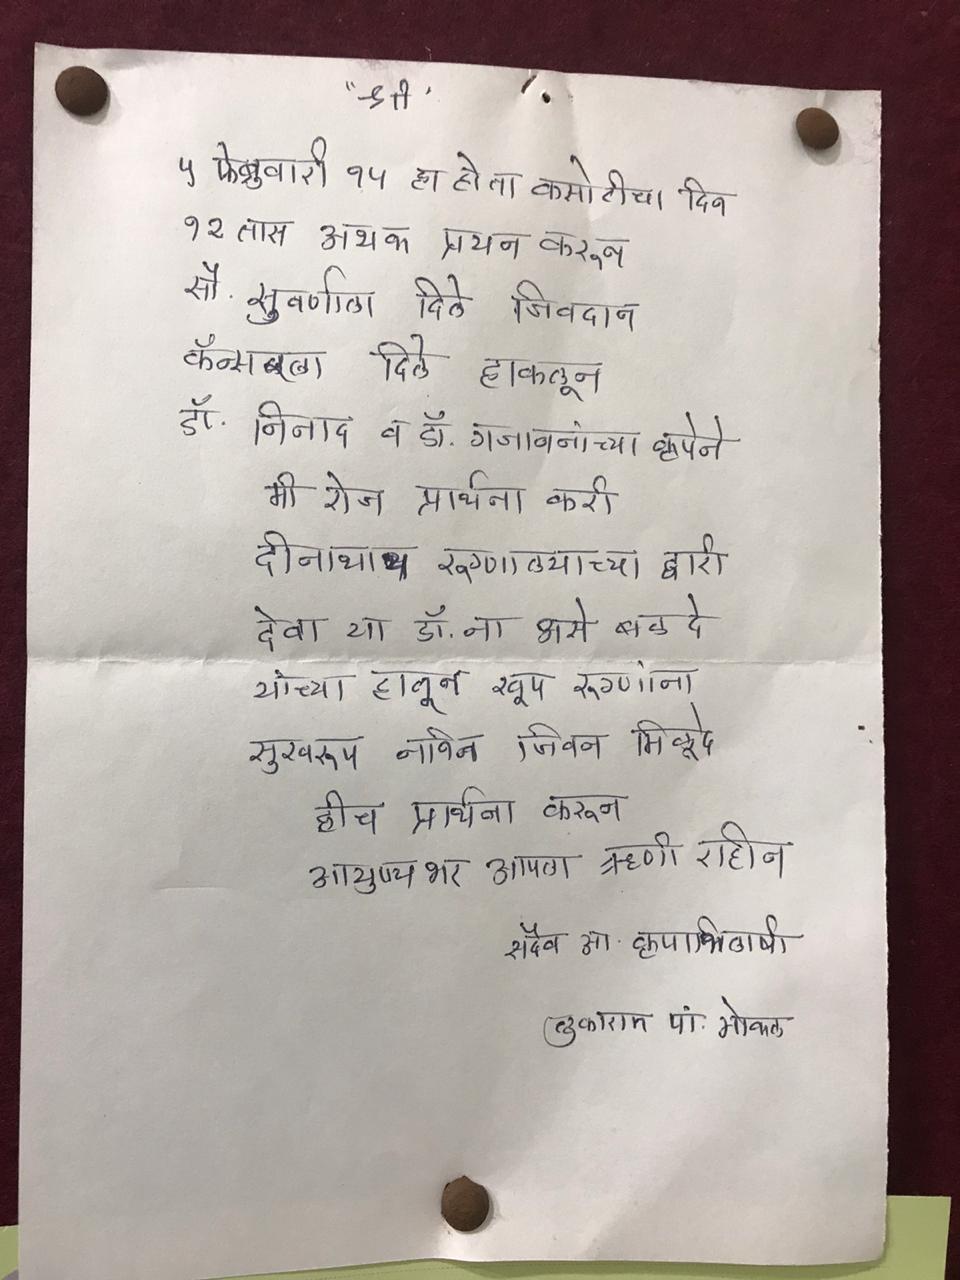 "श्री"
५ फेब्रुवारी १५ हा होता कसोटीचा दिन
१२ तास अथक प्रयन करून
सौ. सुवर्णाला दिले जिवदान
कॅन्सरला दिले हाकलून
डॉ. निनाद व डॉ. गजाननांच्या कृपेने
मी रोज प्रार्थना करी
दीनानाथ रूग्णालयाच्या द्वारी
देवा या डॉ. ना असे बळ दे
यांच्या हातून खूप रूग्णांना
सुखरूप नविन जिवन मिळूदे
हीच प्रार्थना करून
आयुष्यभर आपला ऋणी राहीन
सदैव आ. कृपाभिलाषी
तुकाराम पां. मोकल